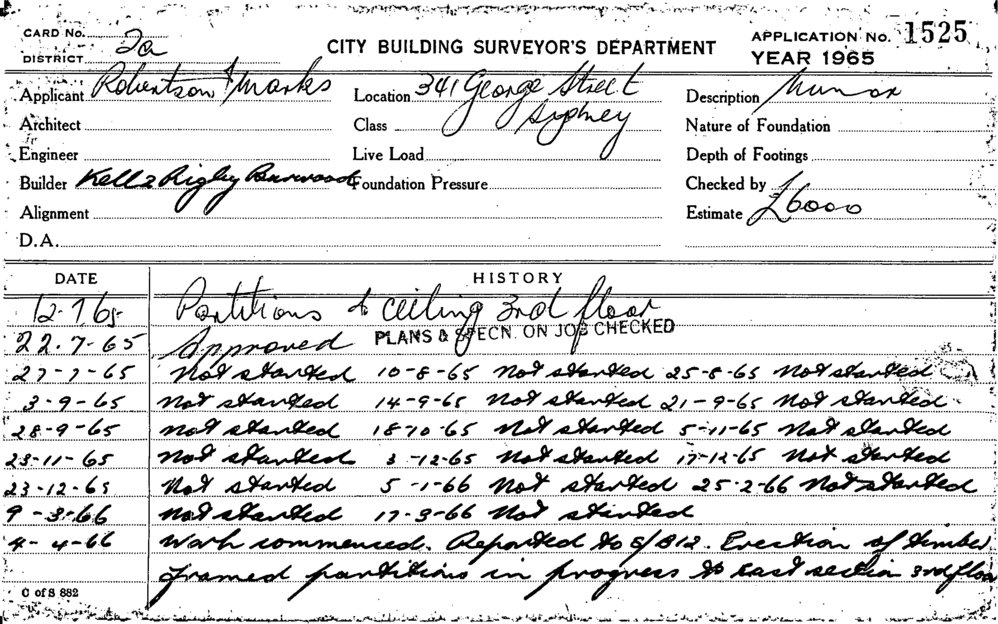 CARD No. 2a CITY BUILDING SURVEYOR'S DEPARTMENT APPLICATION No. 1525
DISTRICT YEAR 1965
Applicant Robertson & Marks Location 341 George Street Description Minor
Architect Class Sydney Nature of Foundation
Engineer Live Load Depth of Footings
Builder Kell & Rigby Burwood Foundation Pressure Checked by
Alignment Estimate £6000
D.A.
DATE HISTORY
12.7.65 Partitions to ceiling 3rd floor
22.7-65 Approved PLANS & SPECN. ON JOB CHECKED
27-7-65 Not started 10-8-65 Not started 25-8-65 Not started
3-9-65 Not started 14-9-65 Not started 21-9-65 Not started
28-9-65 Not started 18-10-65 Not started 5-11-65 Not started
23-11-65 Not started 3-12-65 Not started 17-12-65 Not started
23-12-65 Not started 5-1-66 Not started 25-2-66 Not started
9-3-66 Not started 17-3-66 Not started
4-4-66 Work commenced. Reported to S/B12. Erection of timber
framed partitions in progress to East section 3rd floor
C of S 882